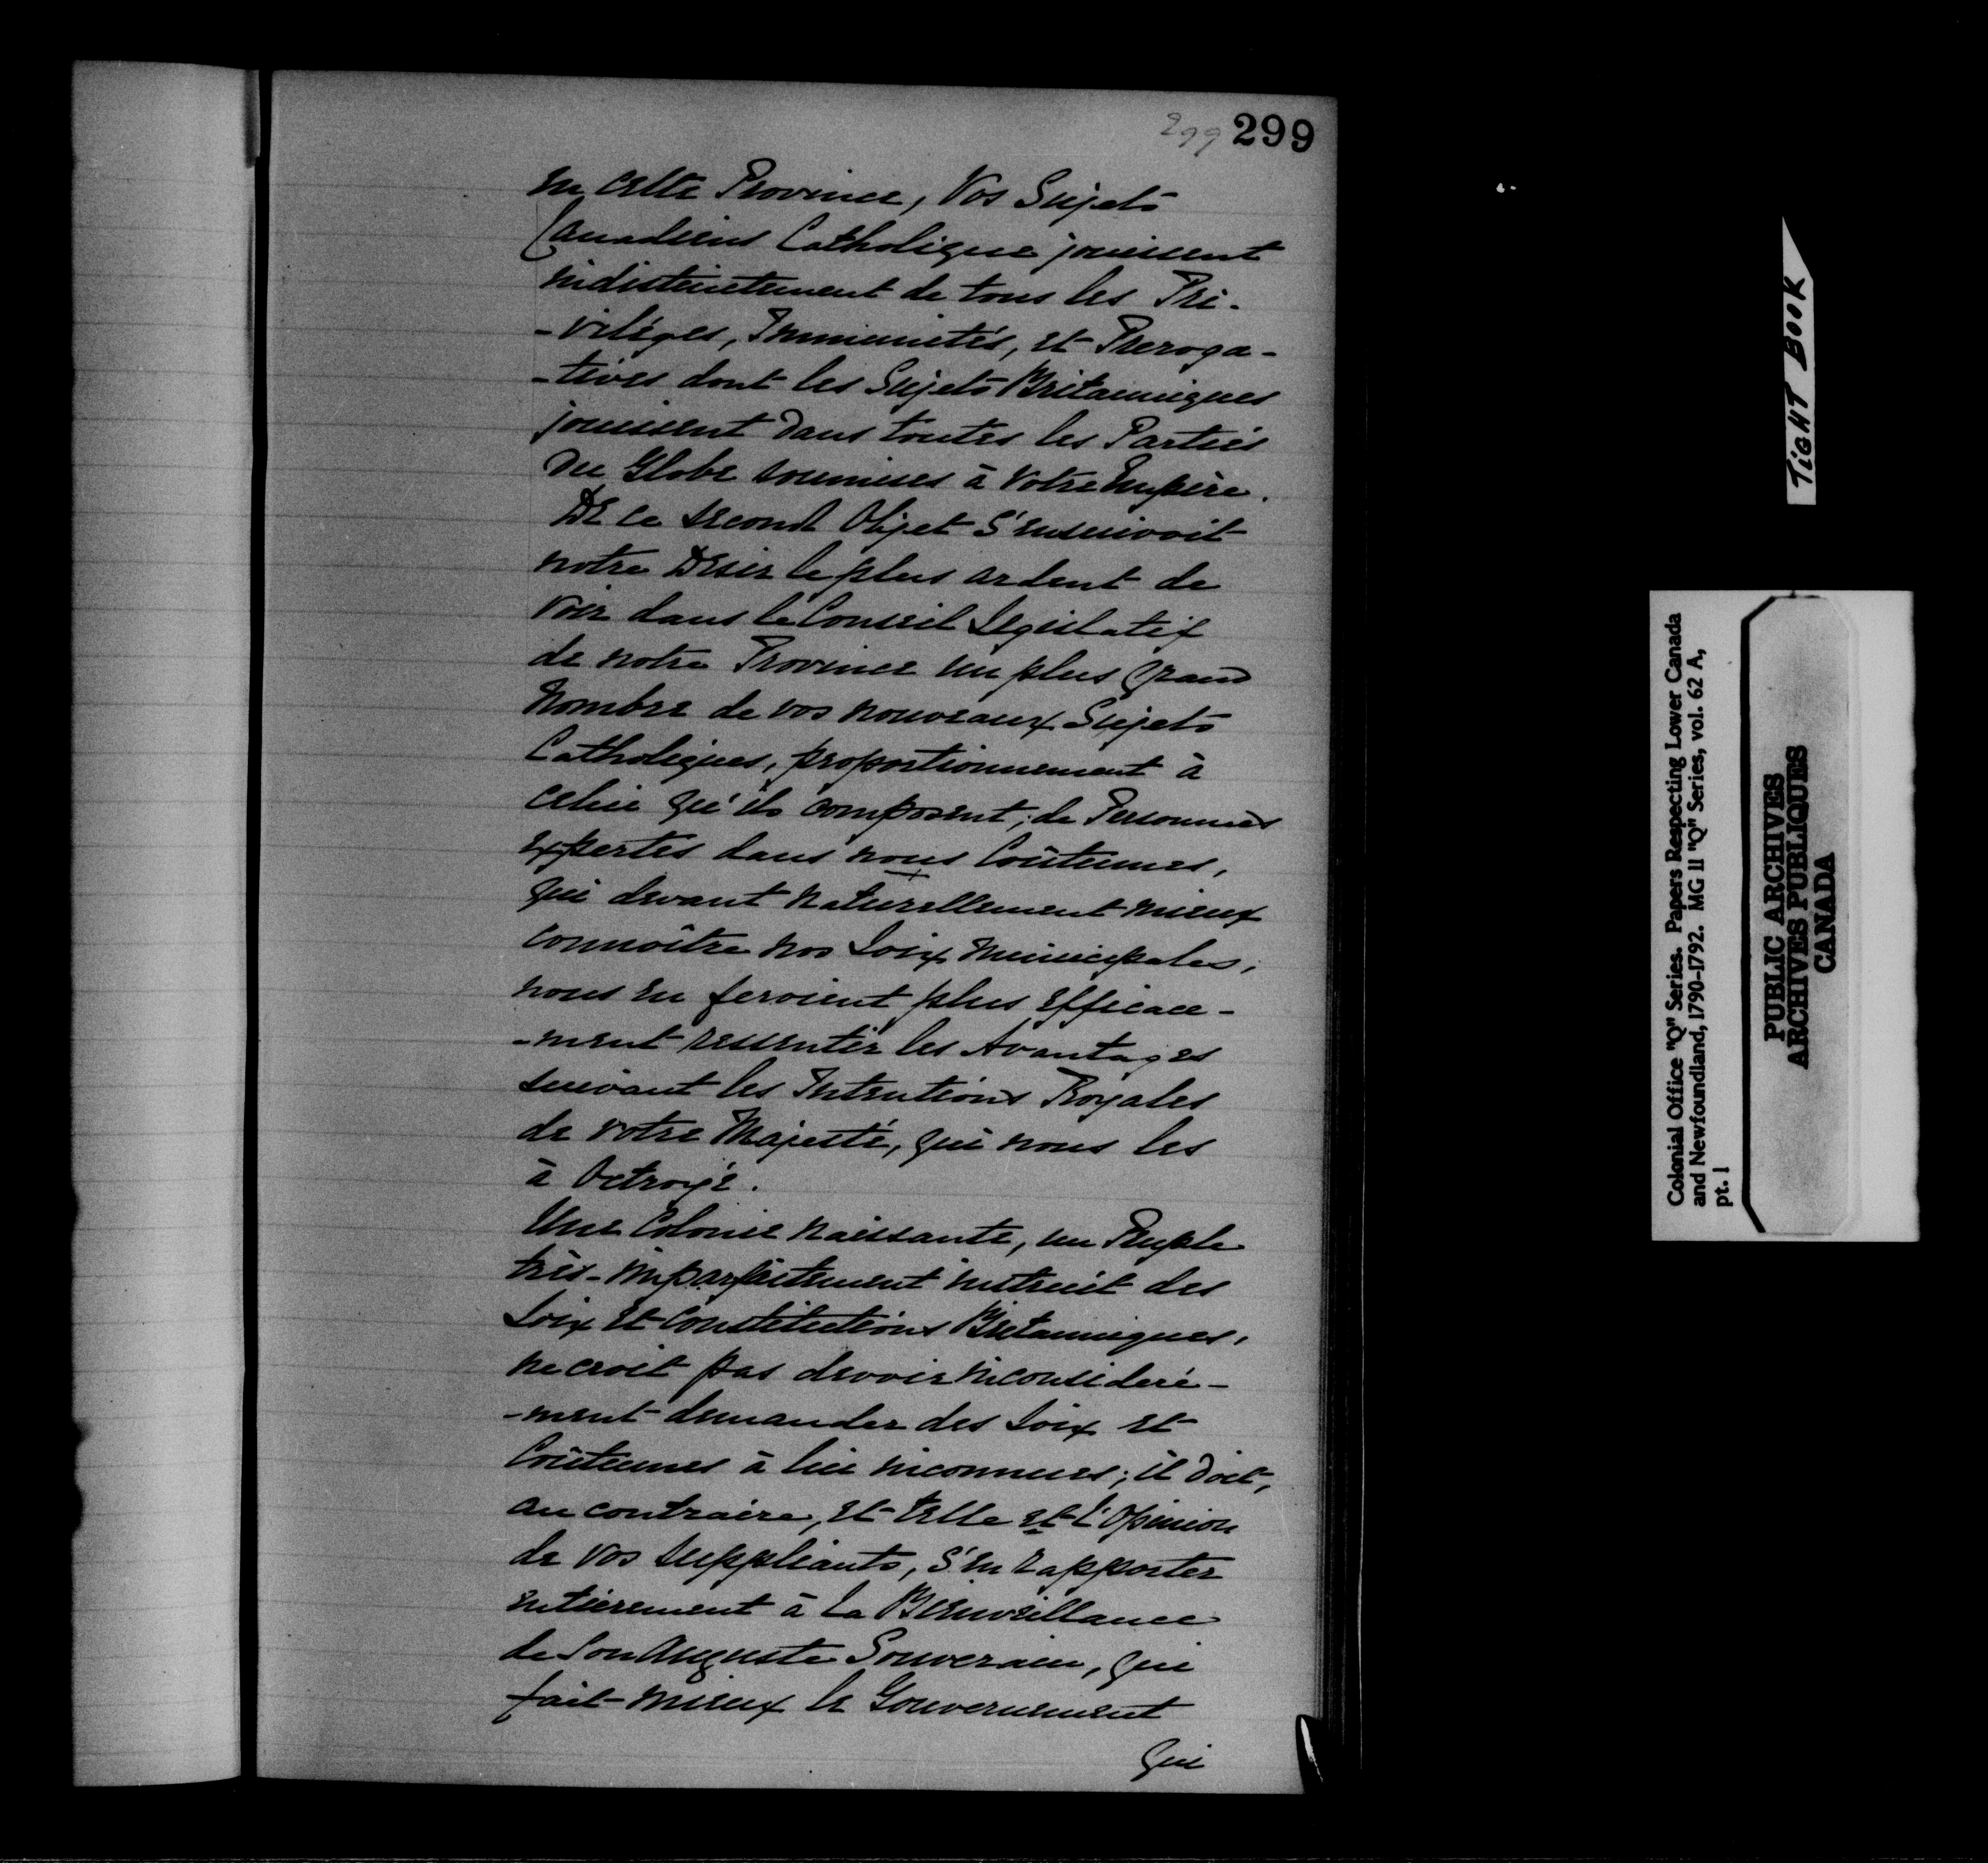 299 299
en cette Province, Vos Sujets
Canadiens Catholique jouissent
indistinctement de tous les Pri-
-viléges, Immunités, et Preroga-
-tives dont les Sujets Britanniques
jouissent dans toutes les Parties
du Globe soumises à Votre Empire.
De ce second Objet S'ensuivoit
notre Desir le plus ardent de
voir dans le Conseil Legislatif
de notre Province un plus grand
Nombre de vos nouveaux Sujets
Catholiques, proportionnement à
celui qu'ils composent; de Personnes
expertes dans nous Coûtumes,
qui devant naturellement mieux
connoître nos Loix municipales,
nous en feroient plus efficace-
-ment ressentir les Avantages
suivant les Intentions Royales
de votre Majesté, qui nous les
à Octroyé.
Une Colonie naissante, un Peuple
très-imparfaitement instruit des
Loix et Constitutions Britanniques,
ne croit pas devoir inconsideré-
-ment demander des Loix et
Coûtumes à lui inconnues; il doit,
au contraire, et telle et l'Opinion
de vos suppliants, s'en rapporter
entièrement à la Bienveillance
de Son Auguste Souverain, qui
fait mieux le Gouvernement
qui
TIGHT BOOK
Colonial Office "Q" Series. Papers Respecting Lower Canada
and Newfoundland, 1790-1792. MG 11 "Q" Series, vol. 62 A,
pt. 1
PUBLIC ARCHIVES
ARCHIVES PUBLIQUES
CANADA